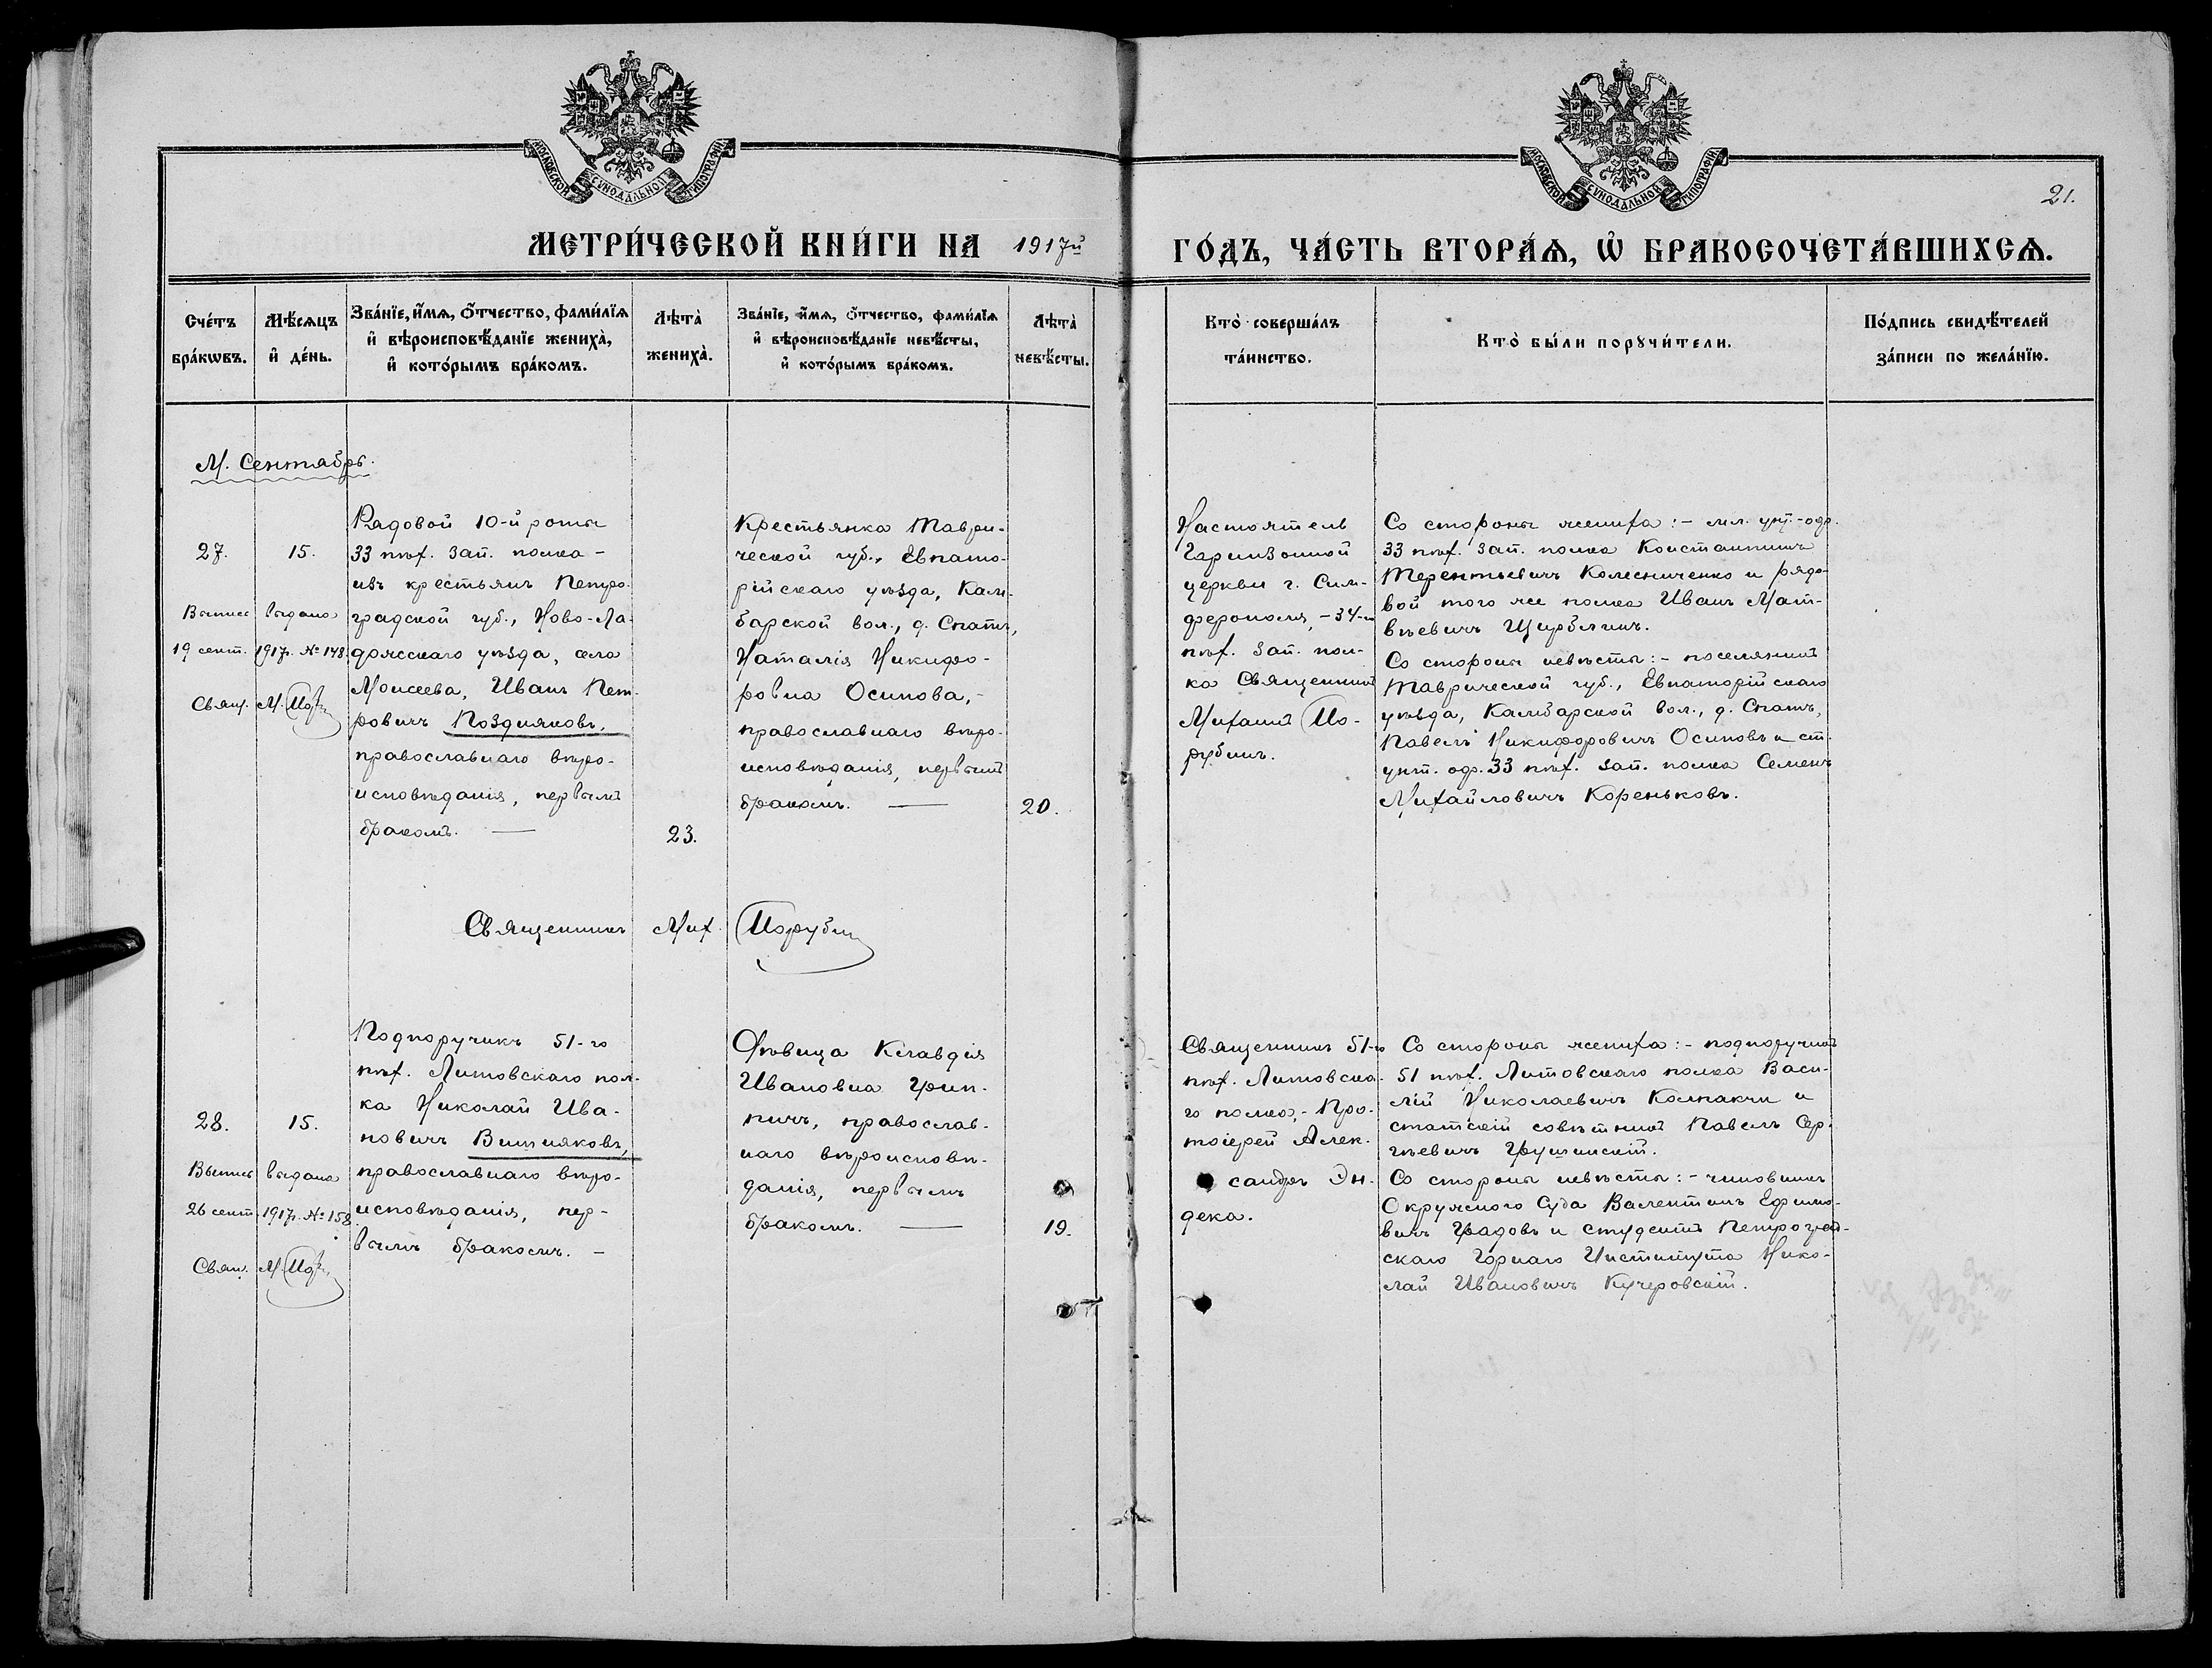 МОСКОВСКОЙ СѴНОДАЛЬНОЙ ТИПОГРАФІИ
МОСКОВСКОЙ СѴНОДАЛЬНОЙ ТИПОГРАФІИ
21.
МЕТРИ́ЧЕСКОЙ КНИ́ГИ НА 1917й ГО́ДЪ, ЧА́СТЬ ВТОРА́Ѧ, Ѡ҆ БРАКОСОЧЕТА́ВШИХСѦ.
Сче́тъ
бра́кѡвъ.
Мѣ́сѧцъ
и҆ де́нь.
Зва́нїе, и҆́мѧ, ѻ҆́тчество, фами́лїѧ
и҆ вѣроисповѣ́данїе жениха̀,
и҆ кото́рымъ бра́комъ.
Лѣта̀
жениха̀.
Зва́нїе, и҆́мѧ, ѻ҆́тчество, фами́лїѧ
и҆ вѣроисповѣ́данїе невѣ́сты,
и҆ кото́рымъ бра́комъ.
Лѣта̀
невѣ́сты.
Кто̀ соверша́лъ
та́инство.
Кто̀ бы́ли порꙋчи́тели.
По́дпись свидѣ́телей
за́писи по жела́нїю.
М. Сентябрь.
27.
15.
Выпись выдана
19 сент. 1917г. № 148.
Свящ. М.
Рядовой 10-й роты
33 пѣх. зап. полка –
изъ крестьянъ Петро-
градской губ., Ново-Ла-
дожскаго уѣзда, села
Моисеева, Иванъ Пет-
ровичъ Поздняковъ,
православнаго вѣро-
исповѣданія, первымъ
бракомъ. —
23.
Крестьянка Таври-
ческой губ., Евпато-
рійскаго уѣзда, Кам-
барской вол., д. Спатъ,
Наталія Никифо-
ровна Осипова,-
православнаго вѣро-
исповѣданія, первымъ
бракомъ. —
20.
Настоятель
Гарнизонной
церкви г. Сим-
ферополя, – 34-го
пѣх. зап. пол-
ка Священникъ
Михаилъ Цо-
рубинъ.
Со стороны жениха: – мл. унт.-офр.
33 пѣх. зап. полка Константинъ
Терентьевичъ Колесниченко и рядо-
вой того же полка Иванъ Мат-
вѣевичъ
Со стороны невѣсты: – поселянинъ
Таврической губ., Евпаторійскаго
уѣзда, Камбарской вол., д. Спатъ,
Павелъ Никифоровичъ Осиповъ и ст.
унт. офр. 33 пѣх. зап. полка Семенъ
Михайловичъ Кореньковъ.
Священникъ Мих. Цорубин
28.
15.
Выпись выдана
26 сент. 1917г. № 158.
Свящ. М.
Подпоручикъ 51-го
пѣх. Литовскаго пол-
ка Николай Ива-
новичъ Вишняковъ,
православнаго вѣро-
исповѣданія, пер-
вымъ бракомъ. –
Дѣвица Клавдія
Ивановна Грин-
пичъ, православ-
наго вѣроисповѣ-
данія, первымъ
бракомъ. —
19.
Священникъ 51-го
пѣх. Литовска-
го полка, – Про-
тоіерей Алек-
сандръ Эн-
дека.
Со стороны жениха: – подпоручикъ
51 пѣх. Литовскаго полка Васи-
лій Николаевичъ Колпакчи и
статскій совѣтникъ Павелъ Сер-
гѣевичъ Грушинскій.
Со стороны невѣсты: – чиновникъ
Окружного Суда Валентинъ Ефимо-
вичъ Градовъ и студентъ Петроград-
скаго Горнаго Института Нико-
лай Ивановичъ Кучеровскій.